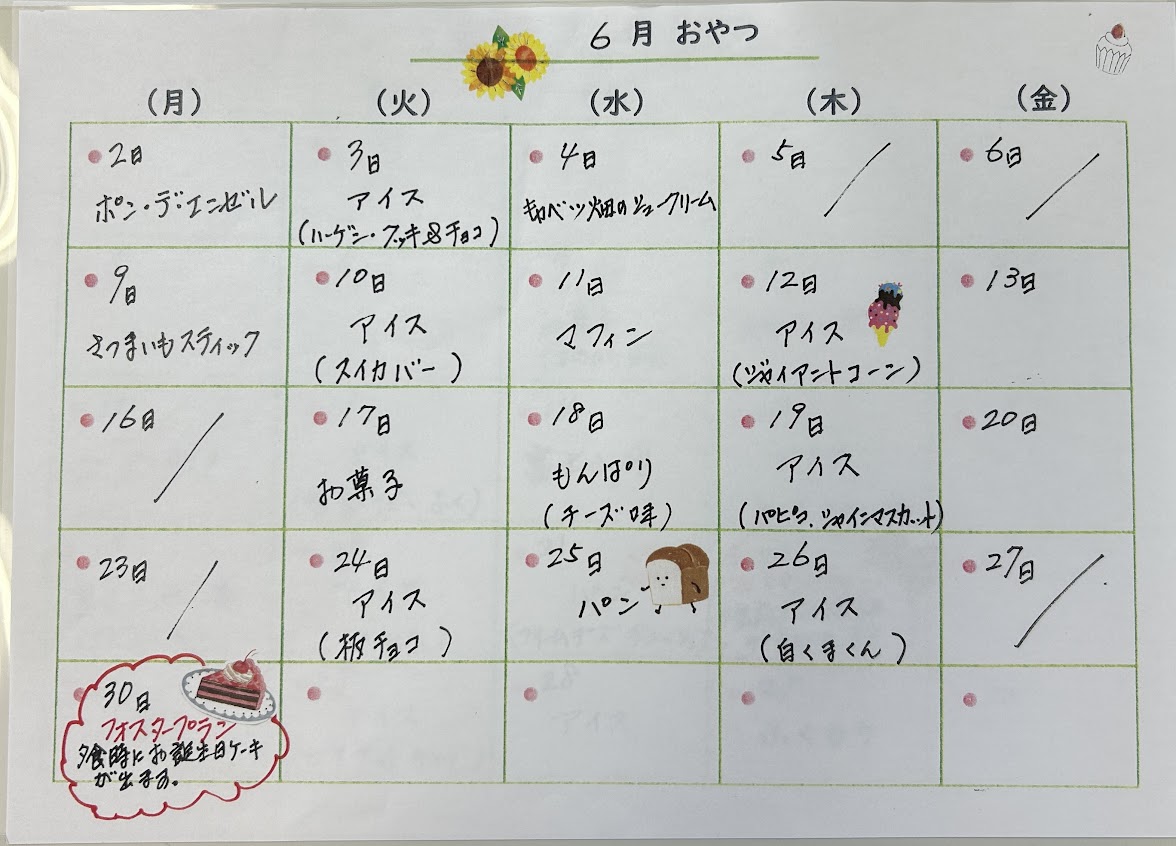 6月 おやつ
(月) (火) (水) (木) (金)
2日
ポン・デ・エンゼル
3日
アイス
(ハーゲン・クッキー&チョコ)
4日
キャベツ畑のシュークリーム
5日
6日
9日
さつまいもスティック
10日
アイス
(スイカバー)
11日
マフィン
12日
アイス
(ジャイアントコーン)
13日
16日
17日
お菓子
18日
もんぱり
(チーズ味)
19日
アイス
(パピコ、シャインマスカット)
20日
23日
24日
アイス
(板チョコ)
25日
パン
26日
アイス
(白くまくん)
27日
30日
フォスタープラン
夕食時にお誕生日ケーキ
が出ます。